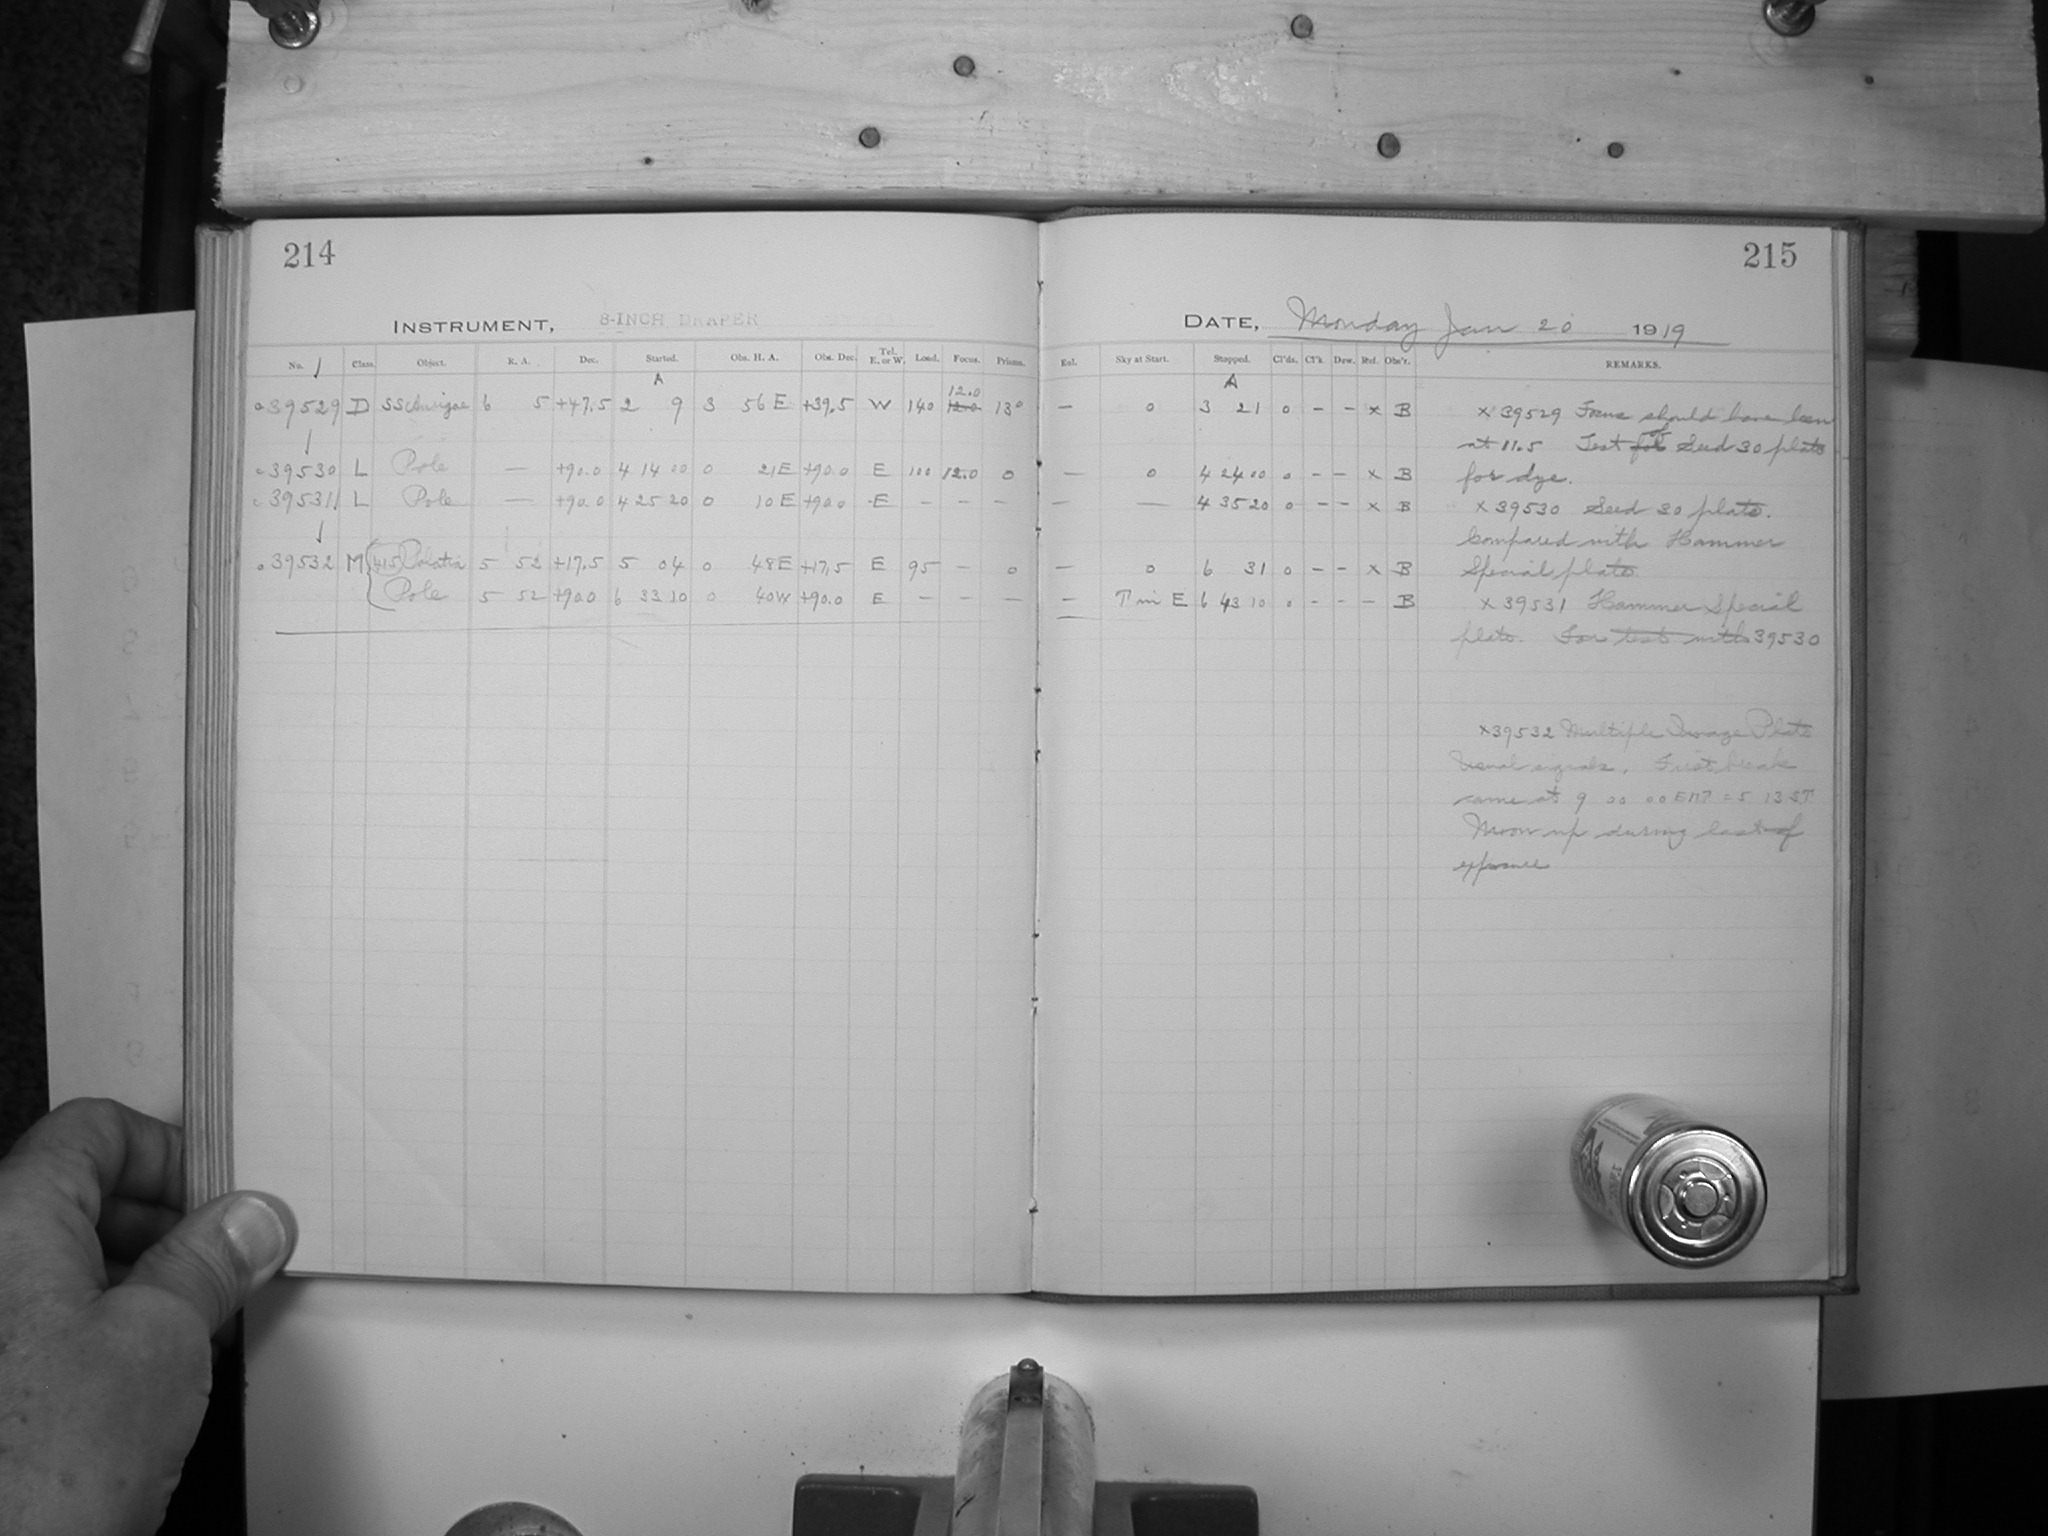 214
INSTRUMENT, 8-INCH DRAPER
No. Class. Object. R. A. Dec. Started. Obs. H. A. Obs. Dec. Tel. E. or W. Load. Focus. Prisms.
A
12.0
39529 D SS Aurigae 6 5 +47.5 2 9 3 56 E +39.5 W 140 12.0 13°
39530 L Pole — +90.0 4 14 00 0 21 E +90.0 E 100 12.0 0
39531 L Pole — +90.0 4 25 20 0 10 E +90.0 E — — —
39532 M 415 5 52 +17.5 5 04 0 48 E +17.5 E 95 — 0
Pole 5 52 +90.0 6 33 10 0 40 W +90.0 E — — —
215
DATE, Monday Jan 20 1919
Sky at Start. Stopped. Cl'ds. Cl'k. Dew. Ref. Obs'r. REMARKS.
A
— 0 3 21 0 – – x B
— 0 4 24 00 0 – – x B
— — 4 35 20 0 – – x B
— 0 6 31 0 – – x B
— T in E 6 43 10 0 – – – B
x 39529 Focus should have been
at 11.5 Test of Seed 30 plate
for dye.
x 39530 Seed 30 plate.
Compared with Hammer
Special plate
x 39531 Hammer Special
plate. For test with 39530
x 39532 Multiple Image Plate
Usual signals. First break
came at 9 00 00 EMT = 5 13 ST
Moon up during last of
exposure